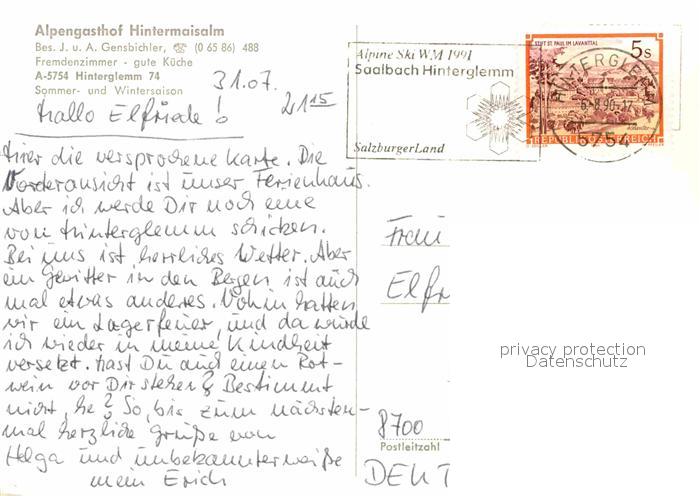 Alpengasthof Hintermaisalm
Bes. J. u. A. Gensbichler, ☎ (0 65 86) 488
Fremdenzimmer - gute Küche
A-5754 Hinterglemm 74
Sommer- und Wintersaison
31.07.
21 15
Hallo Elfriede!
Hier die versprochene Karte. Die
Vorderansicht ist unser Ferienhaus.
Aber ich werde Dir noch eine
von Hinterglemm schicken.
Bei uns ist herrliches Wetter. Aber
ein Gewitter in den Bergen ist auch
mal etwas anderes. Vorhin hatten
wir ein Lagerfeuer, und da wurde
ich wieder in meine Kindheit
versetzt. Hast Du auch einen Rot-
wein vor Dir stehen? Bestimmt
nicht, he? So, bis zum nächsten-
mal herzliche Grüße von
Helga und unbekannterweiße
mein Erich
Alpine Ski WM 1991
Saalbach Hinterglemm
SalzburgerLand
STIFT ST. PAUL IM LAVANTTAL
5s
REPUBLIK ÖSTERREICH
HINTERGLEMM
-6.-8.90-17
5754
Frau
Elfr
privacy protection
Datenschutz
8700
Postleitzahl
DEUT